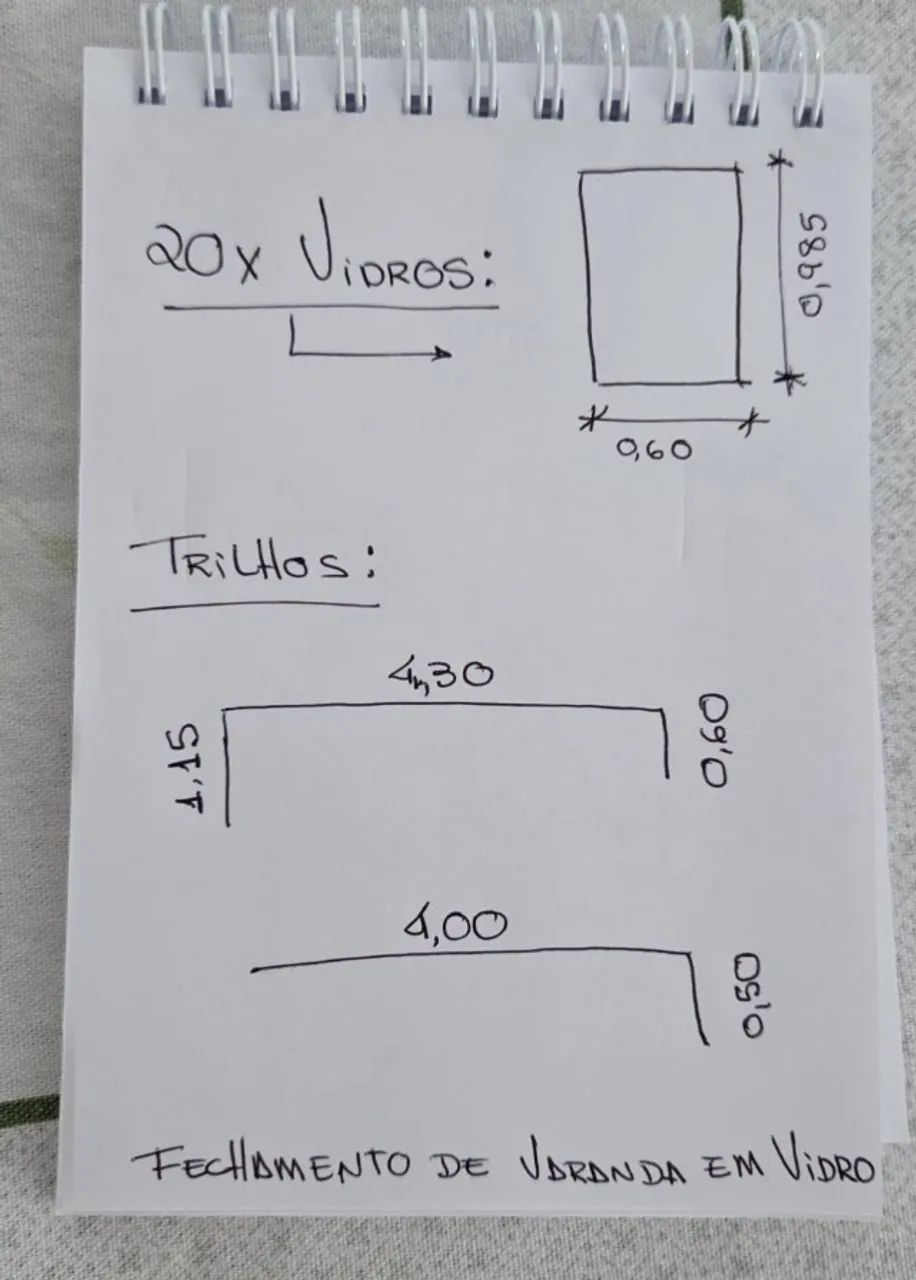 20x VIDROS:
0,985
0,60
TRILHOS:
4,30
1,15
0,60
4,00
0,50
FECHAMENTO DE VARANDA EM VIDRO